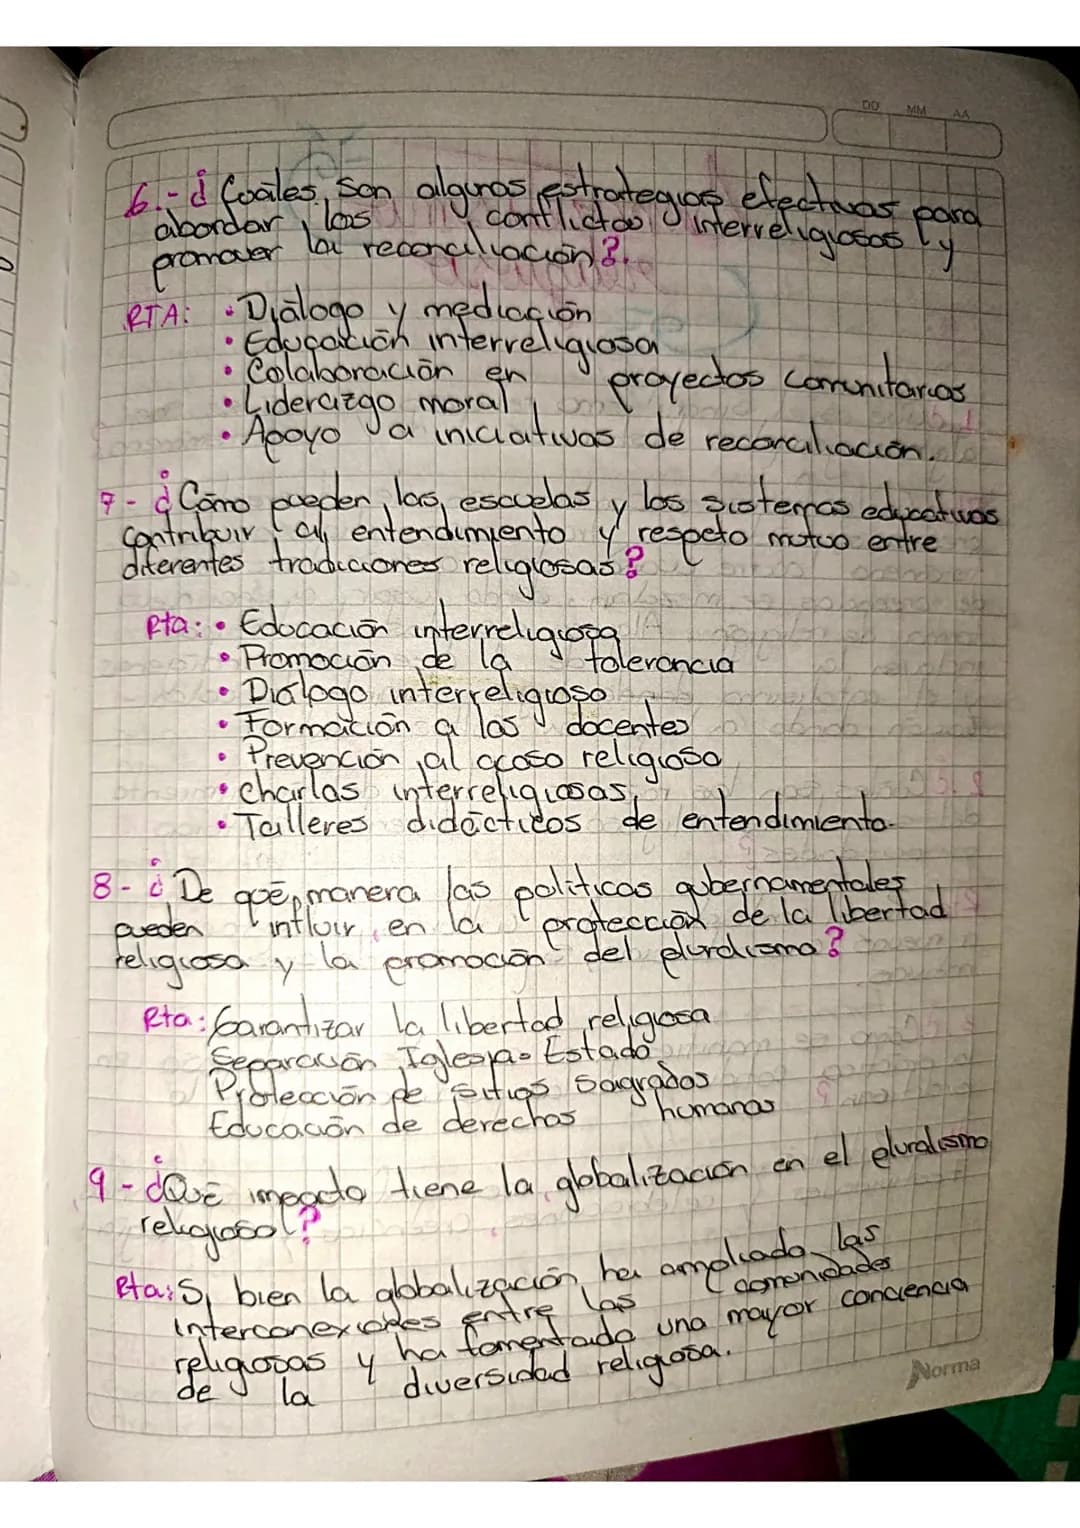 DD MM AA
6.- ¿Cuáles son algunos estrategias efectivas para
abordar los conflictos interreligiosos y
promover la reconciliación?.
RTA: • Diálogo y mediación
• Educación interreligiosa
• Colaboración en proyectos comunitarios
• Liderazgo moral
• Apoyo a iniciativas de reconciliación.
7- ¿Cómo pueden las escuelas y los sistemas educativos
contribuir al entendimiento y respeto mutuo entre
diferentes tradiciones religiosas?
Rta: • Educación interreligiosa
• Promoción de la tolerancia
• Diálogo interreligioso
• Formación a los docentes
• Prevención al acoso religioso
• charlas interreligiosas
• Talleres didácticos de entendimiento.
8- ¿De qué manera las politicas gubernamentales
pueden influir en la protección de la libertad
religiosa y la promoción del pluralismo?
Rta: Garantizar la libertad religiosa
Separación Iglesia-Estado
Protección de sitios sagrados
Educación de derechos humanos
9- ¿Qué impacto tiene la globalización en el pluralismo
religioso?
Rta: Si bien la globalización ha ampliado las
interconexiones entre las comunidades
religiosas y ha fomentado una mayor conciencia
de la diversidad religiosa.
Norma